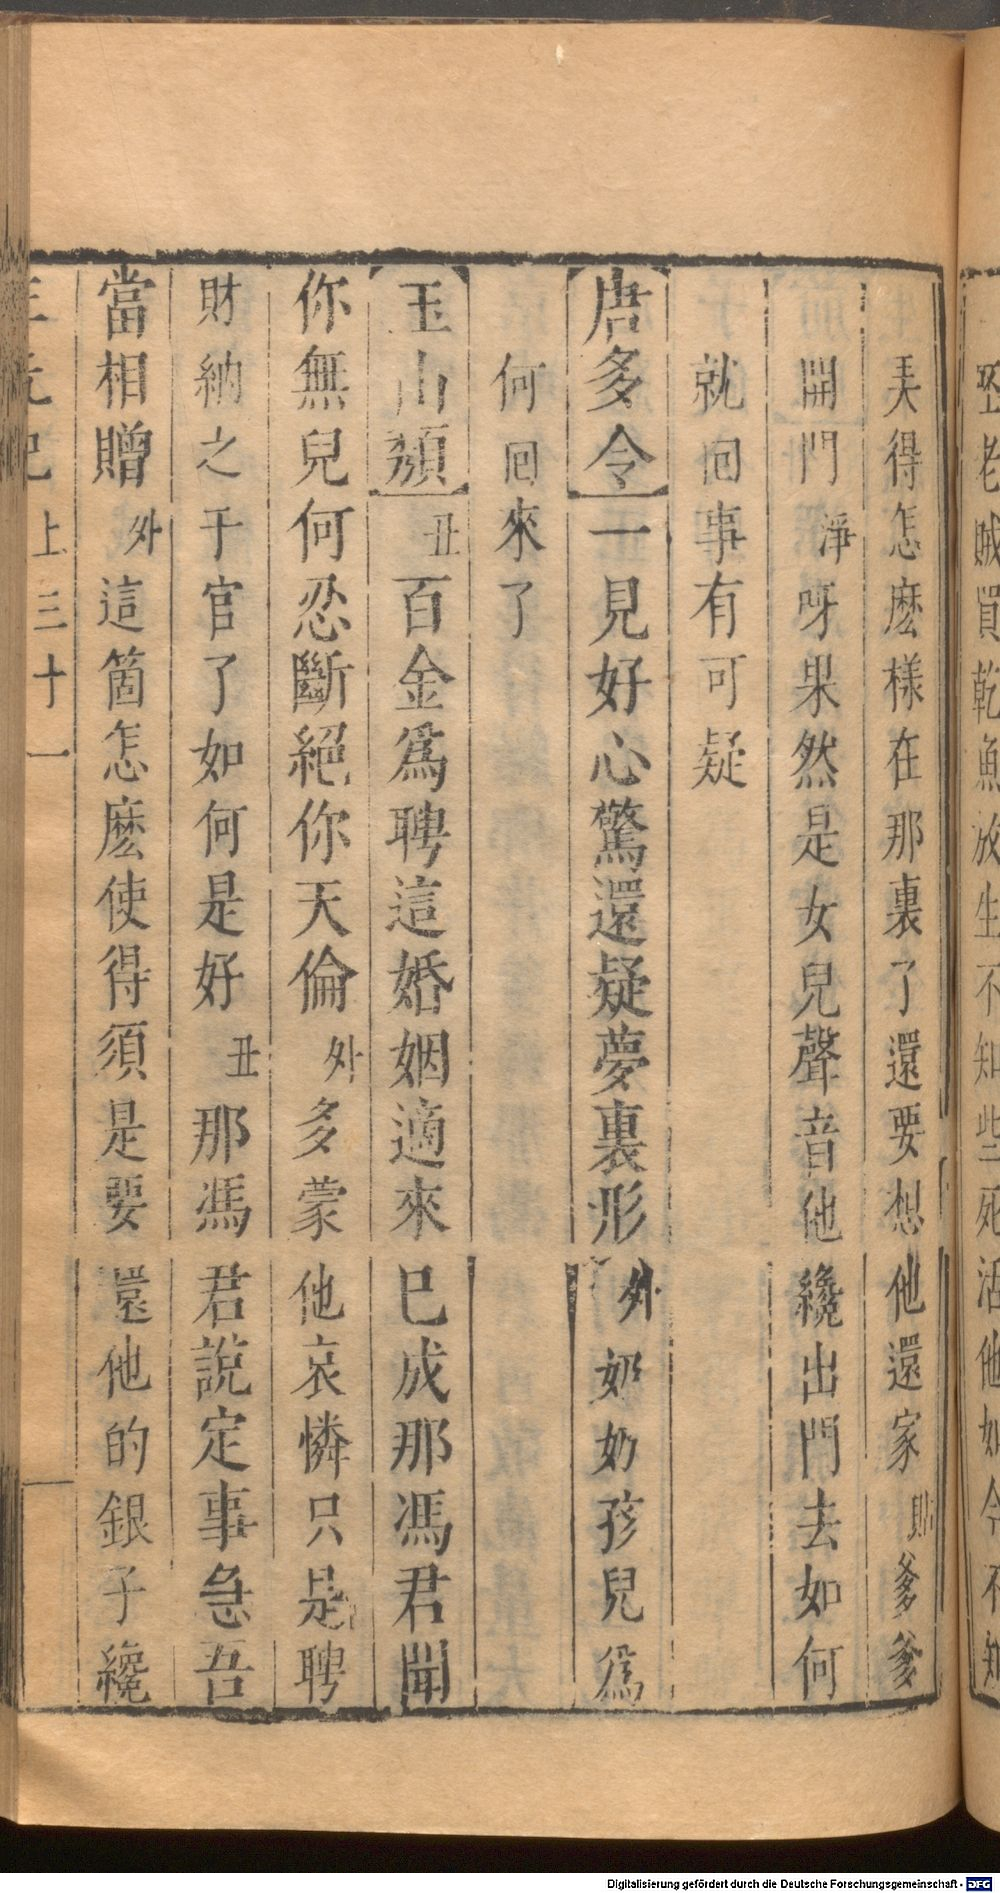 老賊買乾魚放生不知些死活他如今不知
弄得怎麽樣在那裏了還要想他還家貼爹爹
開門淨呀果然是女兒聲音他纔出門去如何
就回事有可疑
【唐多令】一見好心驚還疑夢裏形外奶奶孩兒爲
何回來了
【玉山頹】丑百金爲聘這婚姻適來巳成那馮君聞
你無兒何忍斷絕你天倫外多蒙他哀憐只是聘
財納之于官了如何是好丑那馮君說定事急吾
當相贈外這箇怎麽使得須是要還他的銀子纔
三元記 上 三十一
Digitalisierung gefördert durch die Deutsche Forschungsgemeinschaft - DFG